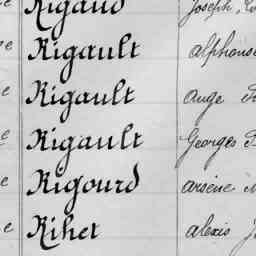 Rigaud Joseph,
Rigault alphonse
Rigault Ange
Rigault Georges
Rigourd arsène
Rihet alexis